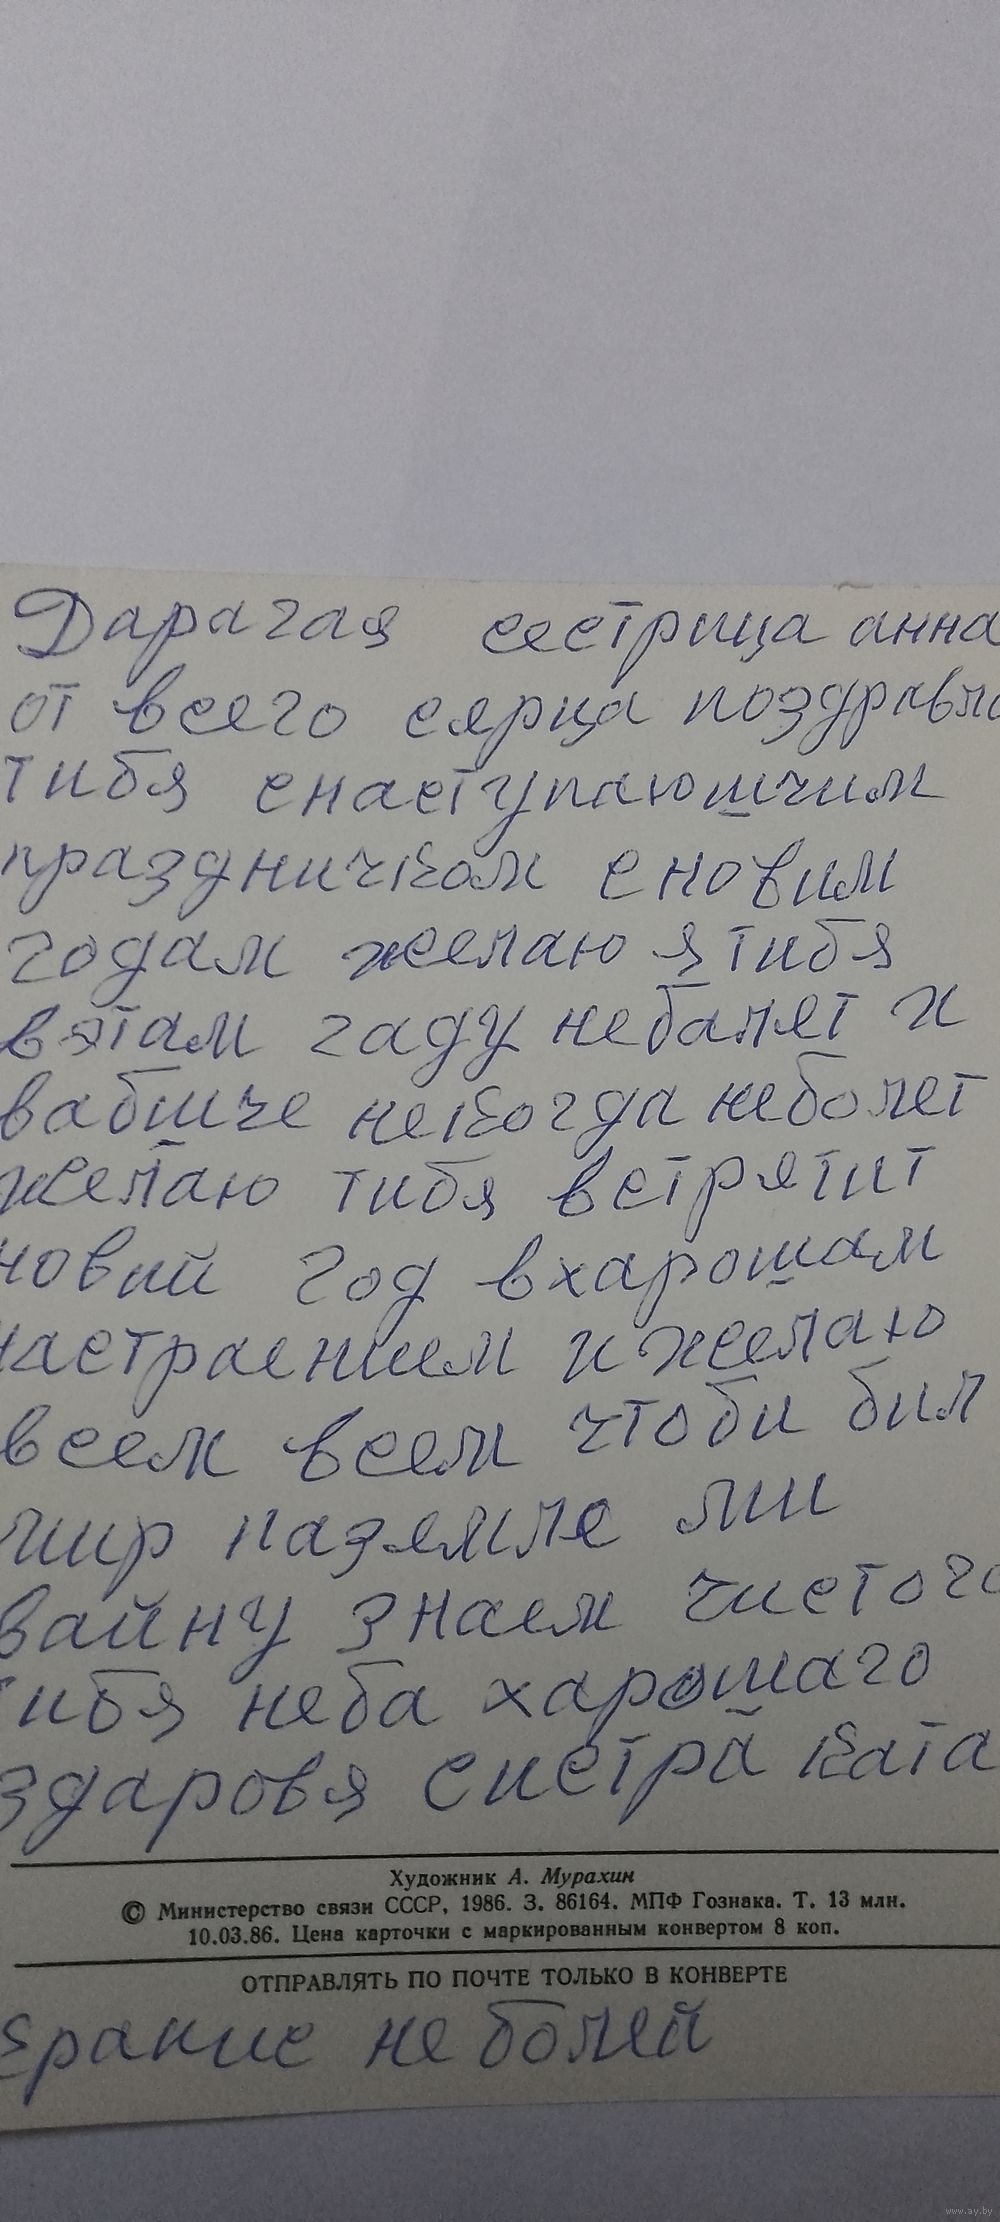 Дарагая сестрица анна
от всего сярца поздравля
тибя снаступаюшчим
праздничком сновим
годам желаю я тибя
вэтам гаду небалет и
вабшче некогда неболет
желаю тибя встрятит
новий год вхарошам
настраением и желаю
всем всем чтоби бил
мир наземле ми
вайну знаем чистого
тибя неба харошаго
здаровя систра Ката
Художник А. Мурахин
© Министерство связи СССР, 1986. З. 86164. МПФ Гознака. Т. 13 млн.
10.03.86. Цена карточки с маркированным конвертом 8 коп.
ОТПРАВЛЯТЬ ПО ПОЧТЕ ТОЛЬКО В КОНВЕРТЕ
не болей
www.ay.by